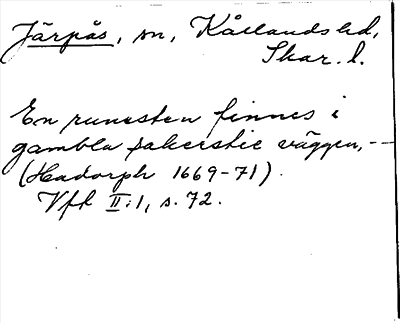 Järpås, sn, Kållands hd,
Skar. l.
En runesten finnes i
gambla sakerstie väggen, --
(Hadorph 1669-71).
Vfk II:1, s. 72.